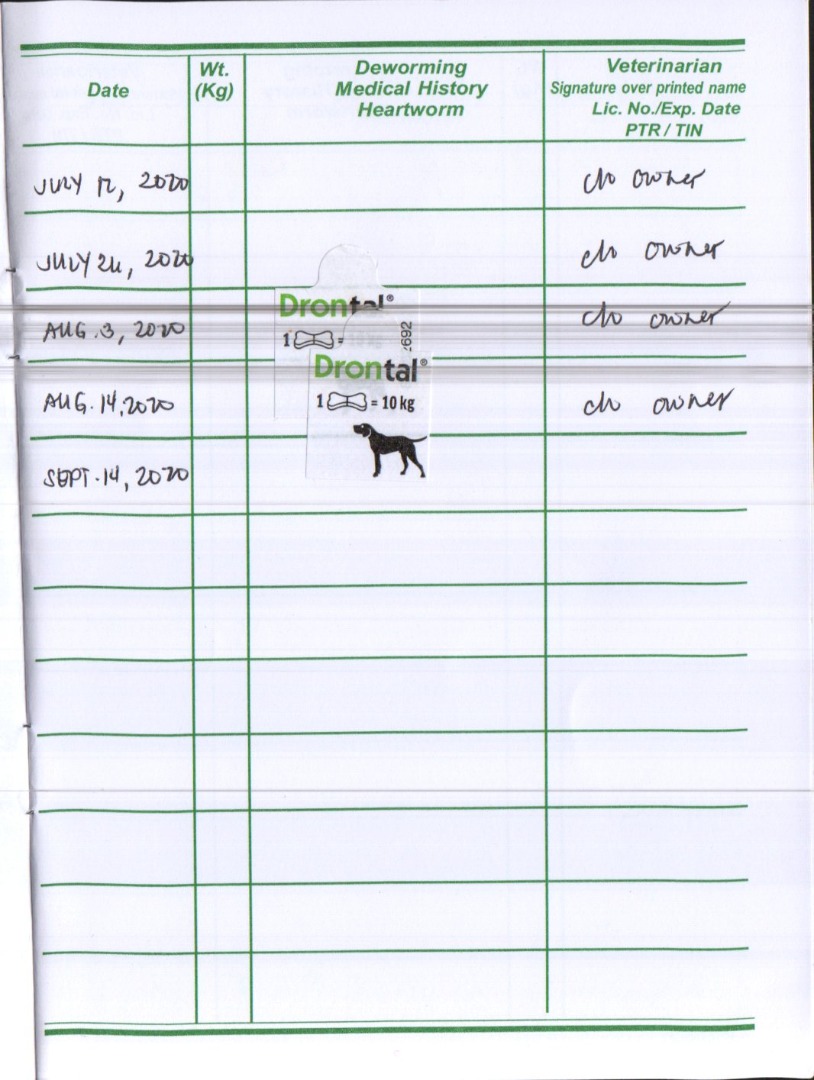 Date
Wt.
(Kg)
Deworming
Medical History
Heartworm
Veterinarian
Signature over printed name
Lic. No./Exp. Date
PTR / TIN
JULY 12, 2020
c/o owner
JULY 24, 2020
c/o owner
Drontal®
AUG. 3, 2020
1 =
c/o owner
Drontal®
AUG. 14, 2020
1 = 10 kg
c/o owner
SEPT. 14, 2020